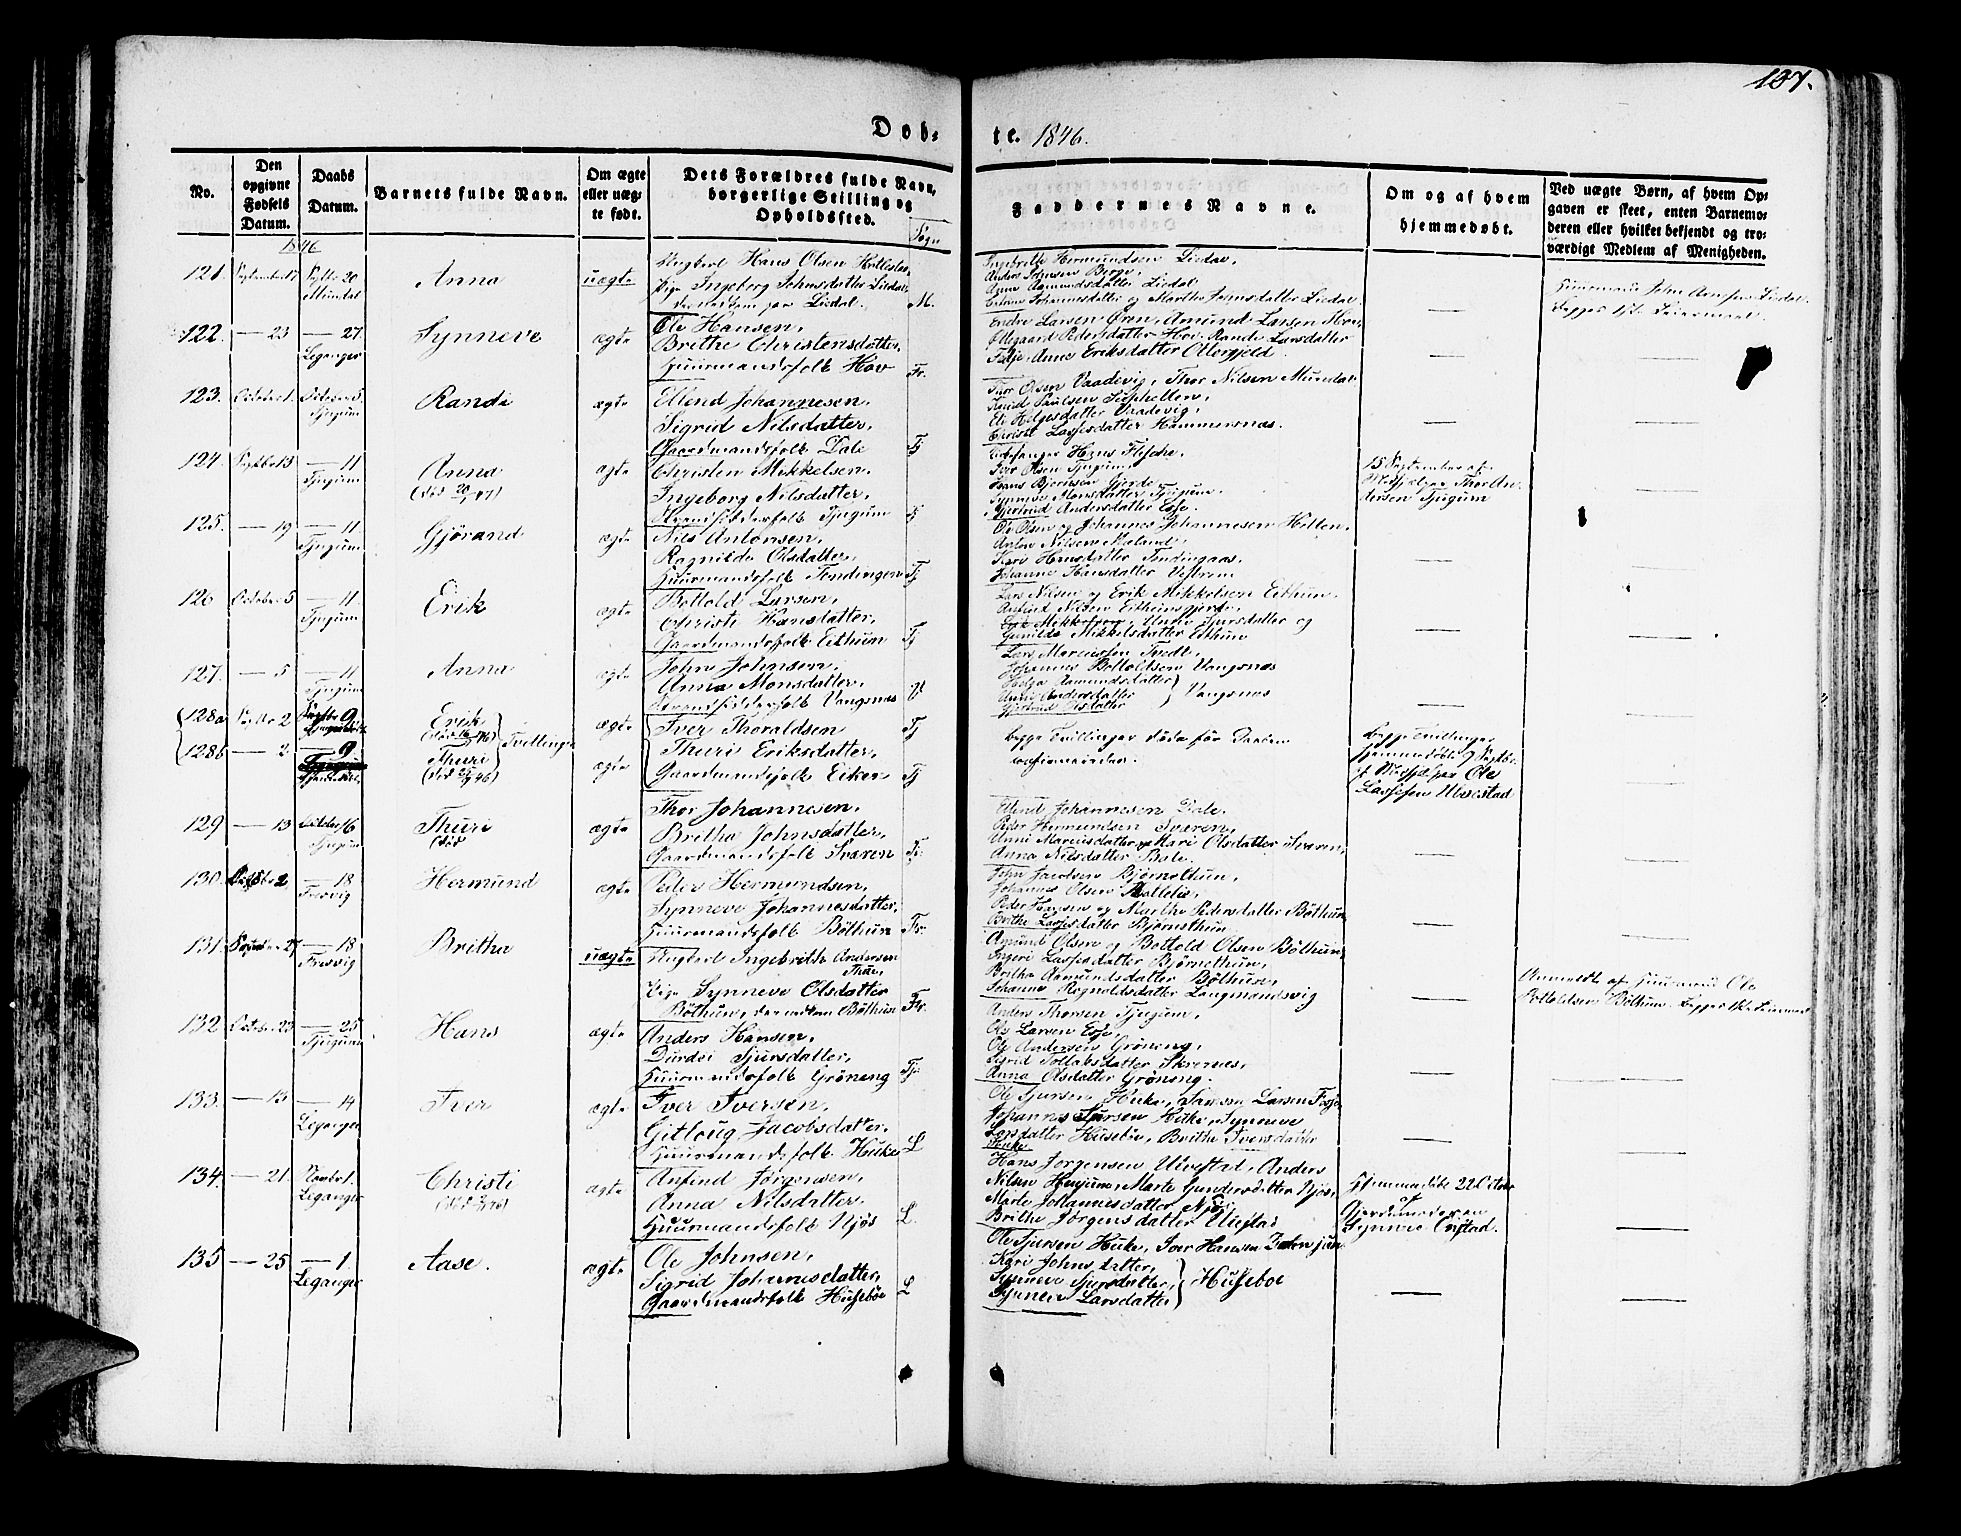 137.
Døb-
te. 1846.
No.
Den opgivne Fødsels Datum.
Daabs Datum.
Barnets fulde Navn.
Om ægte eller uæg-te født.
Dets Forældres fulde Navn, borgerlige Stilling og Opholdssted.
Sogn
Faddernes Navne.
Om og af hvem hjemmedøbt.
Ved uægte Børn, af hvem Op-
gaven er skeet, enten Barnemo-
deren eller hvilket bekjendt og tro-
værdigt Medlem af Menigheden.
1846
121. September 17 Septbr 20 Mundal Anna uægte
Ungkarl Hans Olsen
Pige Ingeborg Johnsdatter Liedal
M.
Ingebrikt Hermundsen Liedal,
Anders Johnsen Berge,
Anna Aamundsdatter Liedal
Johannesdatter og Marthe Johnsdatter Liedal.
122. — 23 — 27. Leganger Synneve ægte
Ole Hansen,
Brithe Christensdatter,
Huusmandsfolk Hov Fr.
Endre Larsen Øren, Amund Larsen Hov,
Pedersdatter Hov, Rande Larsdatter
Anne Eriksdatter Ottergjeld.
123. October 1. October 5. Tjugum Randi ægte
Ellend Johannesen,
Sigrid Nilsdatter,
Gaardmandsfolk Dale Tj
Thor Olsen Vaadevig, Thor Nilsen Mundal
Knud Paulsen
Eli Helgesdatter Vaadevig,
Christi Lassesdatter Hammersnæs.
124. Septbr 13 — 11 Tjugum Anna (død 20/1 47) ægte
Christen Mikkelsen,
Ingeborg Nilsdatter,
Tjugum Tj
Hans Flesche.
Iver Olsen Tjugum,
Hans Bjørnsen Gjerde
Synneve Monsdatter Tjugum.
Gjertrud Andersdatter Esse.
15 September af
Medhjelper Thor An-
dersen Tjugum
125. — 19 — 11. Tjugum Gjørand ægte
Nils Antonsen,
Ragnilde Olsdatter,
Huusmandsfolk Tendingen Tj
Ole Olsen og Johannes Johannesen Hellen,
Anton Nilsen Mæland,
Kari Hansdatter Tendingaas,
Johanne Hansdatter Vestrem
126 October 5 — 11. Tjugum Erik ægte
Bottold Larsen,
Christi Hansdatter,
Gaardmandsfolk Eithun Tj
Lars Nilsen og Erik Mikkelsen Eithun.
Anfind Nilsen Eithunsgjerde,
Sjursdatter og
Gunilda Mikkelsdatter Eithun
127. — 5 — 11 Tjugum Anna ægte
John Johnsen,
Anna Monsdatter,
Vangsnæs V
Lars Marcussen Tvedt,
Johannes Bottoldsen Vangsnæs
Helga Aamundsdatter
Anne Andersdatter
Gjertrud Olsdatter
Vangsnæs
128a Septbr 2 Septbr 9 Erik (død 16/9 46) ægte
128b — 2 — 9 Thuri (død 46) ægte
Tvillinger
Iver Thoraldsen
Thuri Eriksdatter,
Gaardmandsfolk Eiken Tj Tj
Begge Tvillinger døde før Daaben
confirmeredes.
Begge Tvillinger
hjemmedøbte 9 Septbr
af Medhjelper Ole
Lassesen Ulvestad
129 — 13 October 16 Tjugum Thuri (død ægte
Thor Johannesen,
Britha Johnsdatter,
Gaardmandsfolk Sværen Tj.
Ellend Johannesen Dale.
Peder Hermundsen Sværen,
Anni Marcusdatter og Mari Olsdatter Sværen,
Anna Nilsdatter Bale.
130. Octobr 2 — 18 Fresvig Hermund ægte
Peder Hermundsen,
Synneve Johannesdatter,
Huusmandsfolk Bøthun Fr.
John Jacobsen Bjørnethun,
Johannes Olsen
Peder Hansen og Marthe Pedersdatter Bøthun,
Brithe Lassesdatter Bjørnethun
131. September 27 — 18 Fresvig Britha uægte
Ungkarl Ingebrikt Andersen
Thue,
Pige Synneve Olsdatter
Bøthun, Bøthun Fr.
Amund Olsen og Bottold Olsen Bøthun,
Ingeri Lassesdatter Bjørnethun,
Britha Aamundsdatter Bøthun,
Johanne Ragnoldsdatter Langmandsvig
Anmeldt af Huusmand Ole
Bottoldsen Bøthun. Begges 1ste Leiermaal
132 October 23 — 25 Tjugum. Hans ægte
Anders Hansen,
Durdei Sjursdatter,
Huusmandsfolk Grøneng Tj.
Anders Thorsen Tjugum,
Ole Larsen Esse,
Ole Andersen Grøneng,
Sigrid Tollabsdatter
Anna Olsdatter Grøneng.
133. — 13 — 14 Leganger Iver ægte
Iver Iversen,
Gitloug Jacobsdatter,
Huusmandsfolk Henke L
Ole Sjursen Henke, Larsen
Johannes Sjursen Henke, Synneve
Larsdatter Husebøe, Brithe Iversdatter
Henke
134. — 21. Novbr 1. Leganger Christi ægte
Anfind Jørgensen,
Anna Nilsdatter,
Huusmandsfolk Njøs L.
Hans Jørgensen Ulvestad, Anders
Nilsen Henjum, Marte Gundersdatter Njøs,
Marte Johannesdatter Njøs
Brithe Jørgensdatter Ulvestad
Hjemmedøbt 22 October
af
Gjordemoderen
Synneve
135 — 25 — 1. Leganger Aase. ægte
Ole Johnsen,
Sigrid Johannesdatter,
Gaardmandsfolk Husebøe L
Ole Sjursen Henke, Iver Hansen
Kari Johnsdatter,
Synneve Sjursdatter,
Synneve Larsdatter
Husebøe